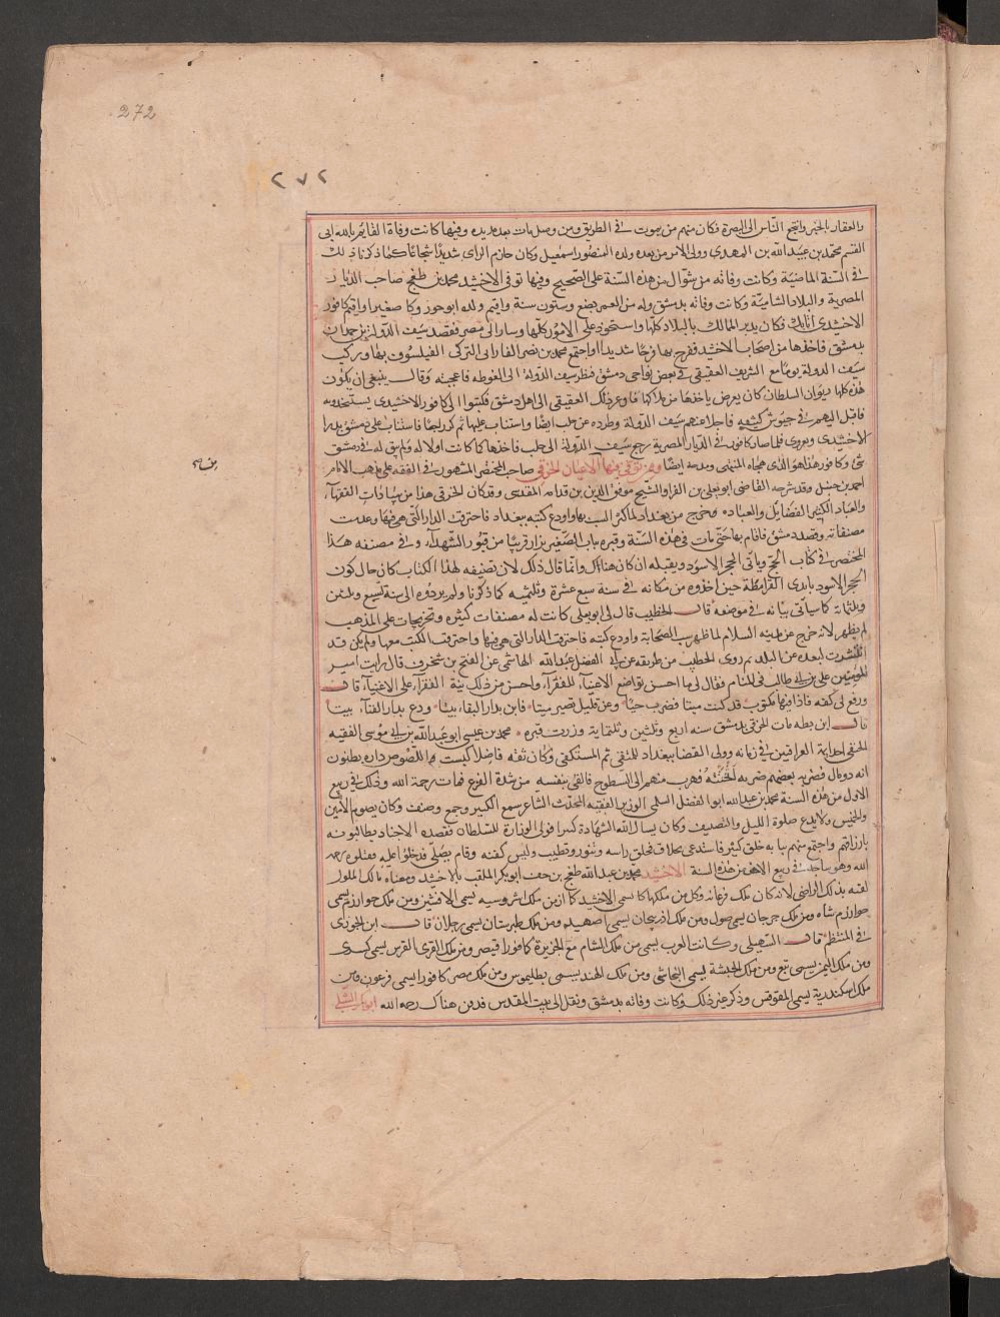 272
٢٧٢
والعقار بالخبز وانتجع الناس الى البصرة فكان منهم من يموت في الطريق ومن وصل مات بعد مديده وفيها كانت وفاة القايم بالله ابي
القسم محمد بن عبيد الله بن المهدي وولى الامر من بعده ولده المنصور اسمعيل وكان حازم الراى شديدا شجاعا كما ذكرنا ذلك
في السنة الماضية وكانت وفاته من شوال من هذه السنة على الصحيح وفيها توفى الاخشيد محمد بن طغج صاحب الديار
المصرية والبلاد الشامية وكانت وفاته بدمشق وله من العمر بضع وستون سنة واقيم ولده ابو حور وكا صغيرا واقيم كافور
الاخشيدى اتابك فكان يدبر الممالك بالبلاد كلها واستحوذ على الامور كلها وسار الى مصر فقصد سيف الدولة بن حمدان
دمشق فاخذها من اصحاب الاخشيد ففرح بها فرحا شديدا واجتمع محمد بن نصر الفارابى التركى الفيلسوف بها وركب
سيف الدولة يوما مع الشريف العقيقى في بعض نواحى دمشق فنظر سيف الدولة الى الغوطه فاعجبته وقال ينبغي ان يكون
هذه كلها ديوان السلطان كان يعرض باخذها من ملاكها فاوعر ذلك العقيقى الى اهل دمشق فكتبوا الى كافور الاخشيدى يستنجدونه
فاقبل اليهم في جيوش كثيفه فاجلا عنهم سيف الدولة وطرده عن حلب ايضا واستناب عليها ثم كر راجعا فاستناب على دمشق بدرا
الاخشيدى ويعرف فلما صار كافور في الديار المصرية رجع سيف الدولة الى حلب فاخذها كما كانت اولا له ولم يبق له في دمشق
شى وكافور هذا هو الذى هجاه المتنبى ومدحه ايضا وممن توفي فيها من الاعيان الخرقي صاحب المختصر المشهور في الفقه على مذهب الامام
احمد بن حنبل وقد شرحه القاضى ابو يعلى بن الفرا والشيخ موفق الدين بن قدامه المقدسى وقد كان الخرقى هذا من سادات الفقهاء
والعباد الكثير الفضايل والعباده وخرج من بغداد لما كثر السب بها واودع كتبه ببغداد فاحترقت الدار التي هى فيها وعدمت
مصنفاته وقصد دمشق فاقام بها حتى مات في هذه السنة وقبره بباب الصغير يزار قريبا من قبور الشهداء وفي مصنفه هذا
المختصر في كتاب الحج وياتى الحجر الاسود ويقبله ان كان هناك وانما قال ذلك لان تصنيفه لهذا الكتاب كان حال كون
الحجر الاسود بايدى القرامطة حين اخذوه من مكانه في سنة سبع عشرة وثلثميه كما ذكرنا ولم يردوه الى سنة تسع وثلثين
وثلثماية كما سياتى بيانه في موضعه قال الخطيب قال لى ابو يعلى كانت له مصنفات كثيره وتخريجات على المذهب
لم يظهر لانه خرج عن مدينة السلام لما ظهر سب الصحابة واودع كتبه فاحترقت الدار التي هى فيها واحترقت الكتب معها ولم يكن قد
انتشرت لبعده عن البلد ثم روى الخطيب من طريقه عن ابى الفضل عبد الله الهاشمى عن الفتح بن شخرف قال رايت امير
المومنين على بن ابى طالب في المنام فقال لى ما احسن تواضع الاغنياء للفقراء واحسن من ذلك تيه الفقراء على الاغنياء قال
ورفع لى كفه فاذا فيها مكتوب قد كنت ميتا فصرت حيا وعن قليل تصير ميتا فابن بدار البقاء بيتا ودع بدار الفناء بيتا
قال ابن بطه مات الخرقى بدمشق سنه اربع وثلثين وثلثماية وزرت قبره محمد بن عيسى ابو عبد الله بن ابى موسى الفقيه
الحنفى احد ايمة العراقيين في زمانه وولى القضا ببغداد للمتقى ثم المستكفى وكان ثقه فاضلا كبست اللصوص داره يظنون
انه ذو مال فضربه بعضهم ضربه اثخنته فهرب منهم الى السطوح فالقى بنفسه من شدة الفزع فمات رحمة الله وذلك في ربيع
الاول من هذه السنة محمد بن عبد الله ابو الفضل السلمى الوزير الفقيه المحدث الشاعر سمع الكثير وجمع وصنف وكان يصوم الاثنين
والخميس ولا يدع صلوة الليل والتصنيف وكان يسال الله الشهادة كثيرا فولى الوزارة للسلطان فقصده الاجناد يطالبونه
بارزاقهم واجتمع منهم ببابه خلق كثير فاستدعى بحلاق فحلق راسه وتنور وتطيب ولبس كفنه وقام يصلى فدخلوا عليه فقتلوه رحمه
الله وهو ساجد في ربيع الاخر من هذه السنة الاخشيد محمد بن عبد الله طغج بن جف ابو بكر الملقب بالاخشيد ومعناه مالك الملوك
لقبه بذلك الراضى لانه كان ملك فرغانه وكل من ملكها كان يسمى الاخشيد كما ان من ملك اشروسيه يسمى الافشين ومن ملك خوارزم يسمى
خوارزم شاه ومن ملك جرجان يسمى صول ومن ملك اذربيجان يسمى اصهبد ومن ملك طبرستان يسمى رسلان قال ابن الجوزى
في المنتظم قال السهيلى وكانت العرب يسمى من ملك الشام مع الجزيرة كافورا قيصر ومن ملك القرى الفرس يسمى كسرى
ومن ملك اليمن يسمى تبع ومن ملك الحبشة يسمى النجاشى ومن ملك الهند يسمى بطليموس ومن ملك مصر كافورا يسمى فرعون ومن
ملك اسكندرية يسمى المقوقس وذكر غير ذلك وكانت وفاته بدمشق ونقل الى بيت المقدس فدفن هناك رحمه الله ابو بكر الشبلي